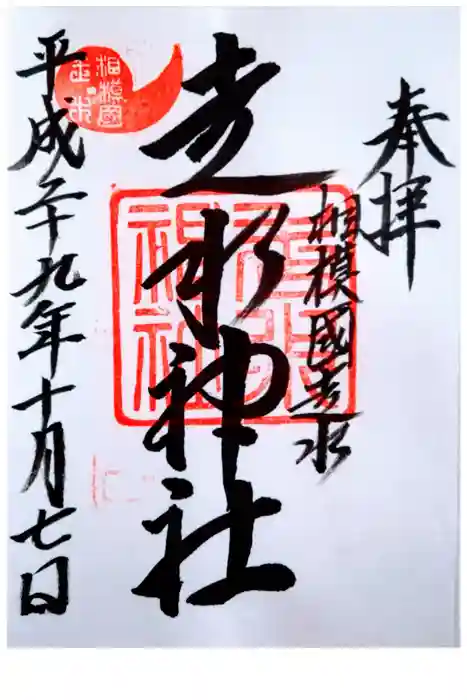 奉拝
相模國走水
走水神社
平成二十九年十月七日
相模國
走水神社